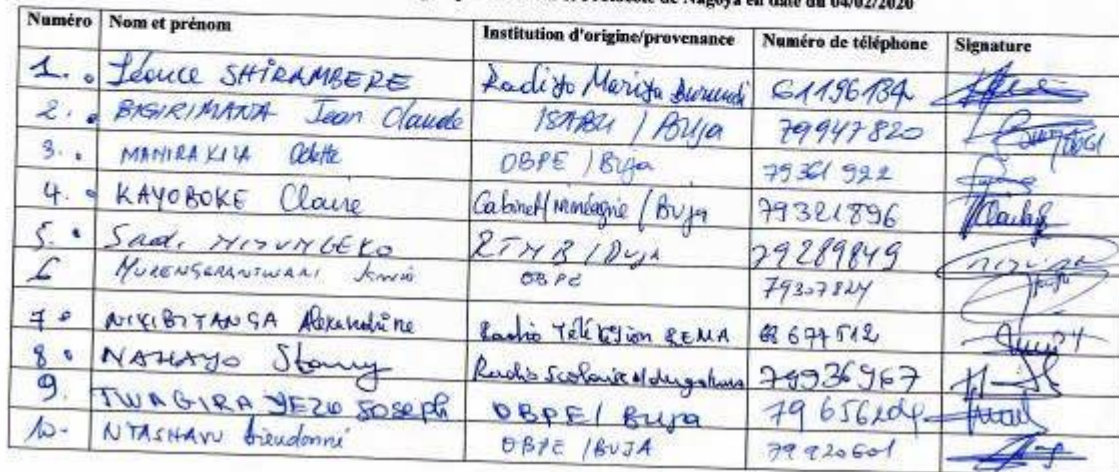 Protocole de Nagoya en date du 04/02/2020
Numéro Nom et prénom Institution d'origine/provenance Numéro de téléphone Signature
1. Léonce SHIRAMBERE Radiyo Mariya Burundi 61196184
2. BIGIRIMANA Jean Claude ISABU / Buja 79947820
3. MANIRAKIZA Odette OBPE / Buja 79361 922
4. KAYOBOKE Claire Cabinet/ minéagrie / Buja 79321896
5. Sadi RTNB / Buja 79289849
6 OBPE 79307824
7 Alexandrine Radio Télévision REMA 68 677512
8 NAHAYO Radio Scolaire Ndragakura 79936967
9. TWAGIRAYEZU Joseph OBPE / Buja 79 656204
10- NTASHAVU Dieudonné OBPE / BUJA 79920601